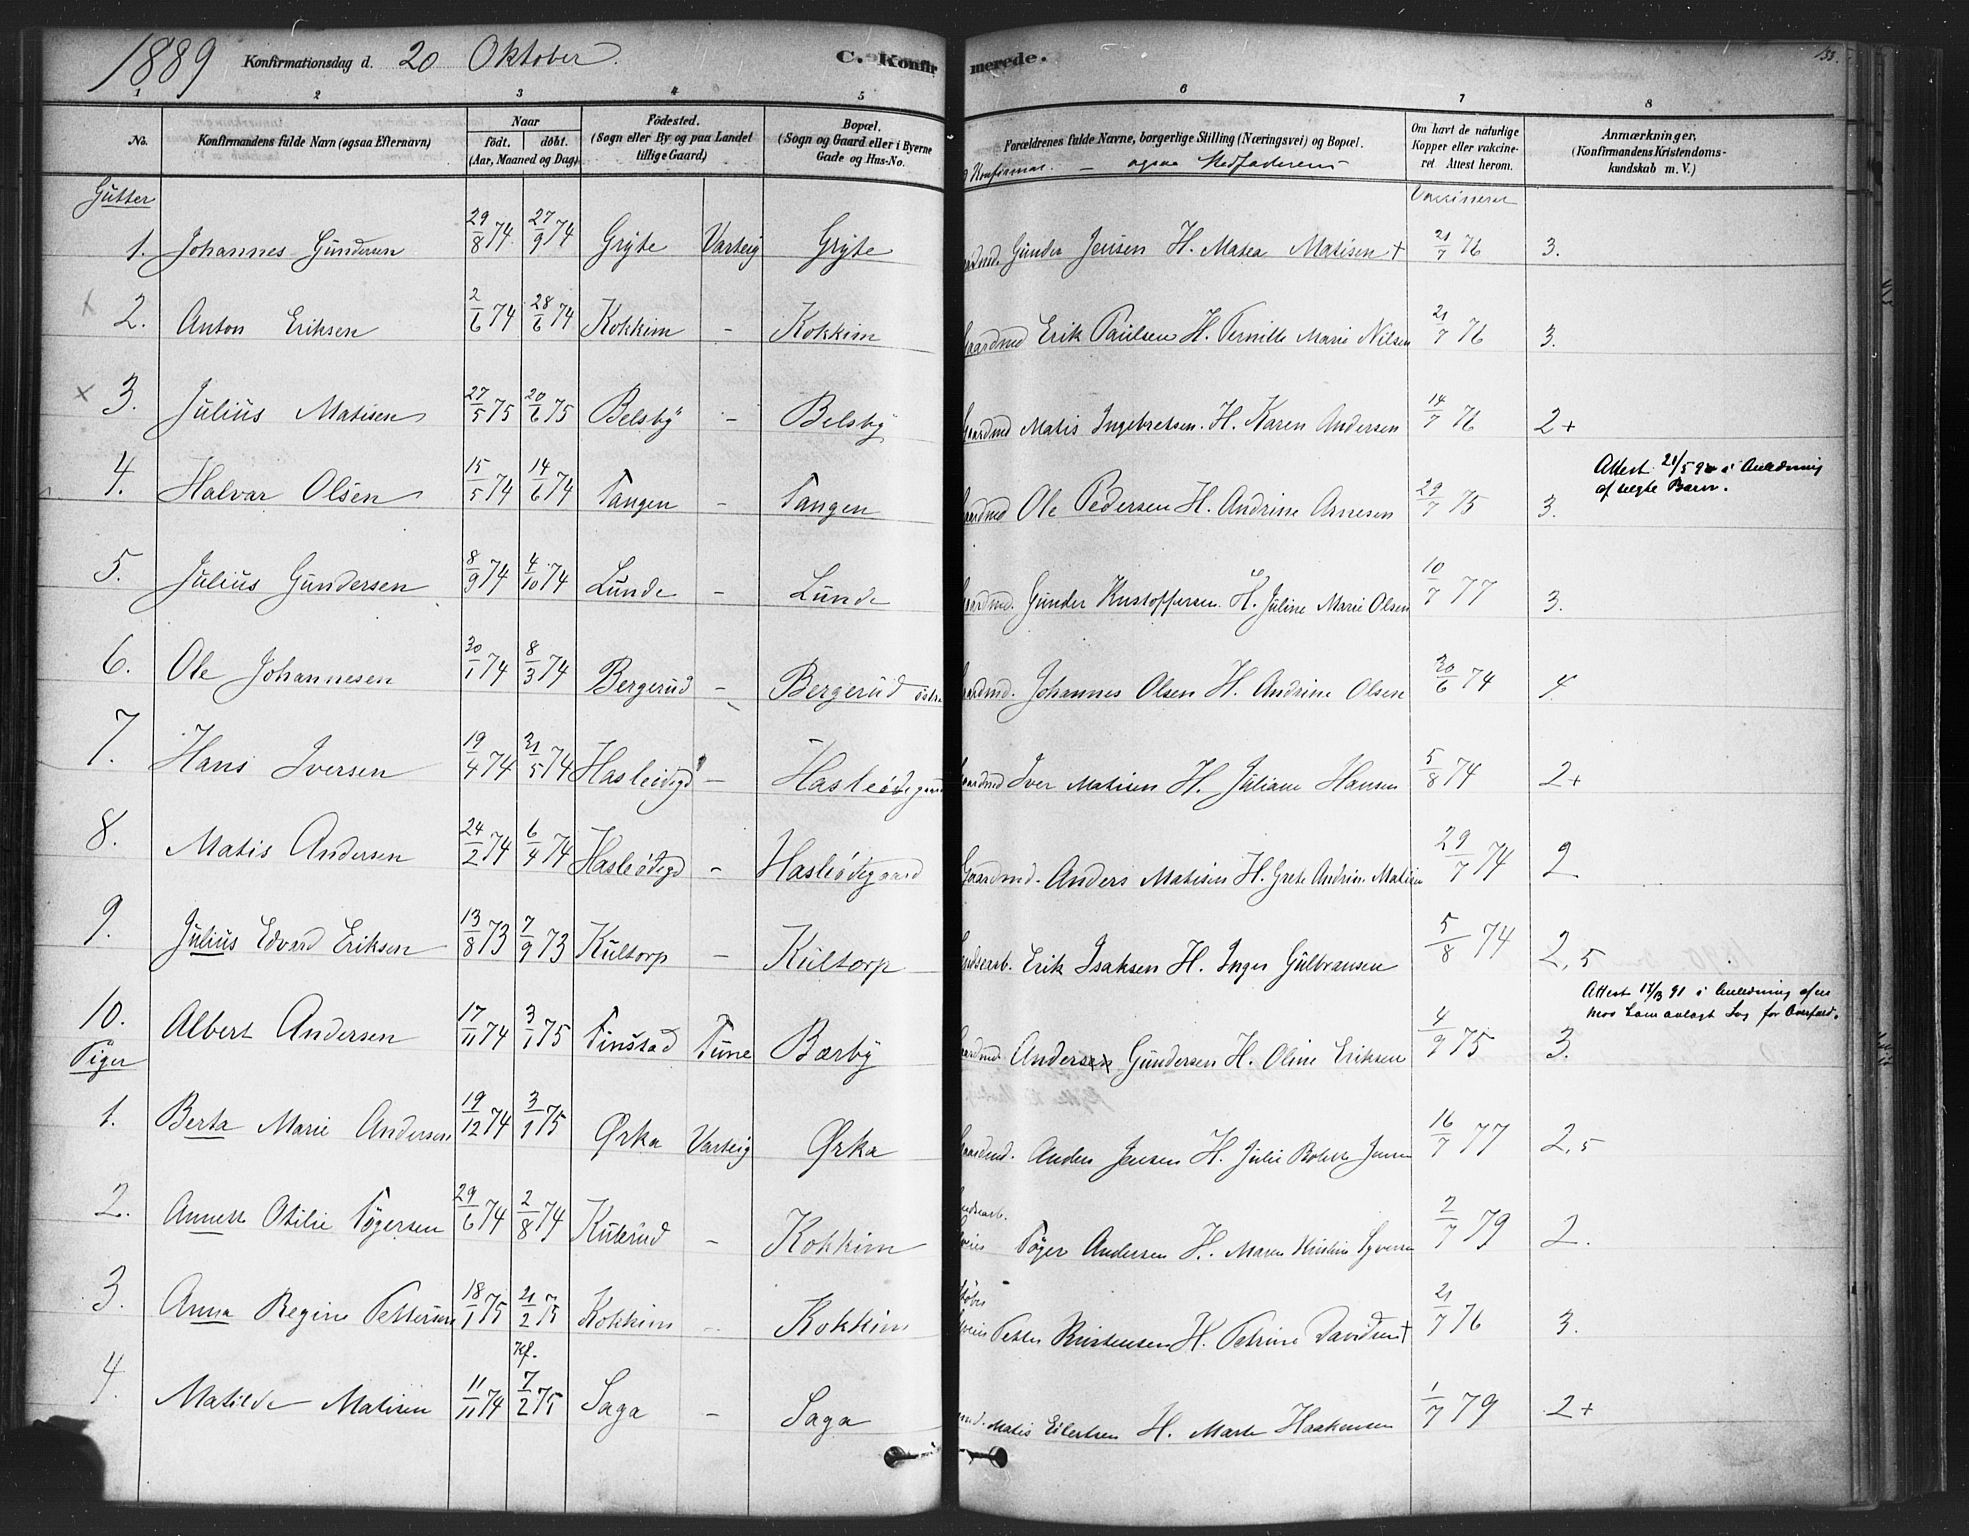 1889 Konfirmationsdag d. 20 Oktober. C. Konfirmerede. 
1 2 3 4 5 6 7 8
No. Konfirmandens fulde Navn (ogsaa Efternavn) Naar født. døbt. (Aar, Maaned og Dag) Fødested. (Sogn eller By og paa Landet tillige Gaard) Bopæl. (Sogn og Gaard eller i Byerne Gade og Hus-No. Forældrenes fulde Navne, borgerlige Stilling (Næringsvei) og Bopæl. Om havt de naturlige Kopper eller vakcineret Attest herom. Anmærkninger. (Konfirmandens Kristendomskundskab m. V.)
ogsaa Stedfaderens
Vaccineret
Gutter
1. Johannes Gundersen 29/8 74. 27/9 74 Gryte Varteig Gryte Gunder Jensen H. Matea Matisen + 21/7 76 3.
2. Anton Eriksen 2/6 74 28/6 74 Kokkim - Kokkim Gaardmd Erik Paulsen H. Pernille Marie Nilsen 21/7 76 3.
× 3. Julius Matisen 27/5 75 20/6 75 Belsby - Belsby Gaardmd Matis Ingebretsen. H. Karen Andersen 14/7 76 2+
4. Halvar Olsen 15/5 74 14/6 74 Tangen - Tangen Gaardmd Ole Pedersen H. Andrine Arnesen 29/7 75 3.
Attest 21/5 92 i Anledning
af uegte Barn.
5. Julius Gundersen 8/9 74 4/10 74 Lunde - Lunde Gaardmd. Gunder Kristoffersen. H. Juline Marie Olsen 10/7 77 3.
6. Ole Johannesen 30/1 74 8/3 74 Bergerud - Bergerud østre Gaardmd. Johannes Olsen H. Andrine Olsen 30/6 74 4.
7. Hans Iversen 19/4 74 31/5 74 Hasleødegd - Hasleødegaard Gaardmd Iver Matisen H. Juliane Hansen 5/8 74 2+
8. Matis Andersen 24/2 74 6/4 74 Hasleødegd - Hasleødegaard Gaardmd. Anders Matisen H. Grete Andrin. Matisen 29/7 74 2
9. Julius Edvard Eriksen 13/8 73 7/9 73 Kultorp - Kultorp Erik Isaksen H. Inger Gulbransen 5/8 74 2,5
Attest 91 i Anledning af en
10. Albert Andersen 17/11 74 3/1 75 Tinstad Tune Bærby Gaardmd. Andersen Gundersen H. Oline Eriksen 4/9 75 3.
Piger
1. Berta Marie Andersen 19/12 74 3/1 75 Ørka Varteig Ørka Gaardmd. Anders Jensen H. Julie Bolette Jensen 16/7 77 2,5
2. Annette Otilie Tøgersen 29/6 74 2/8 74 Kulerud - Kokkim Tøger Andersen H. Maren Kristine Syversen 2/7 79 2.
3. Anna Regine Pettersen 18/1 75 21/2 75 Kokkim - Kokkim Petter Kristensen H. Petrine Davidsen + 21/7 76 3.
Kf.
4. Matilde Matisen 11/11 74 7/2 75 Saga - Saga Matis Eilertsen H. Marte Haakensen 1/7 79 2+